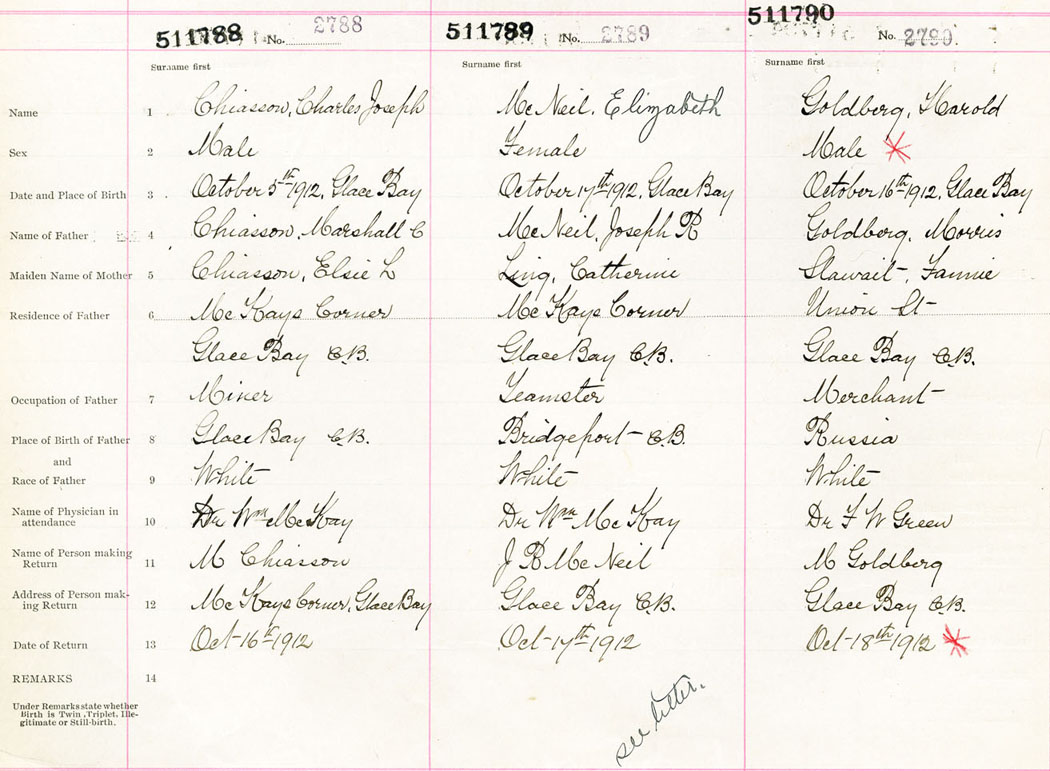 511788 No. 2788 511789 No. 2789 511790 No. 2790.
Surname first Surname first Surname first
Name 1 Chiasson, Charles Joseph Mc Neil, Elizabeth Goldberg, Harold
Sex 2 Male Female Male
Date and Place of Birth 3 October 5th 1912, Glace Bay October 17th 1912, Glace Bay October 16th 1912, Glace Bay
Name of Father 4 Chiasson, Marshall C Mc Neil, Joseph R Goldberg, Morris
Maiden Name of Mother 5 Chiasson, Elsie L Ling, Catherine Fannie
Residence of Father 6 Mc Kays Corner Mc Kays Corner Union St
Glace Bay C.B. Glace Bay C.B. Glace Bay C.B.
Occupation of Father 7 Miner Teamster Merchant
Place of Birth of Father 8 Glace Bay C.B. Bridgeport C.B. Russia
and
Race of Father 9 White White White
Name of Physician in
attendance 10 Dr Wm Mc Kay Dr Wm Mc Kay Dr F W Green
Name of Person making
Return 11 M Chiasson J R Mc Neil M Goldberg
Address of Person mak-
ing Return 12 Mc Kays Corner, Glace Bay Glace Bay C.B. Glace Bay C.B.
Date of Return 13 Oct 16th 1912 Oct 17th 1912 Oct 18th 1912
REMARKS 14
Under Remarks state whether
Birth is Twin, Triplet, Ille-
gitimate or Still-birth.
see letter.